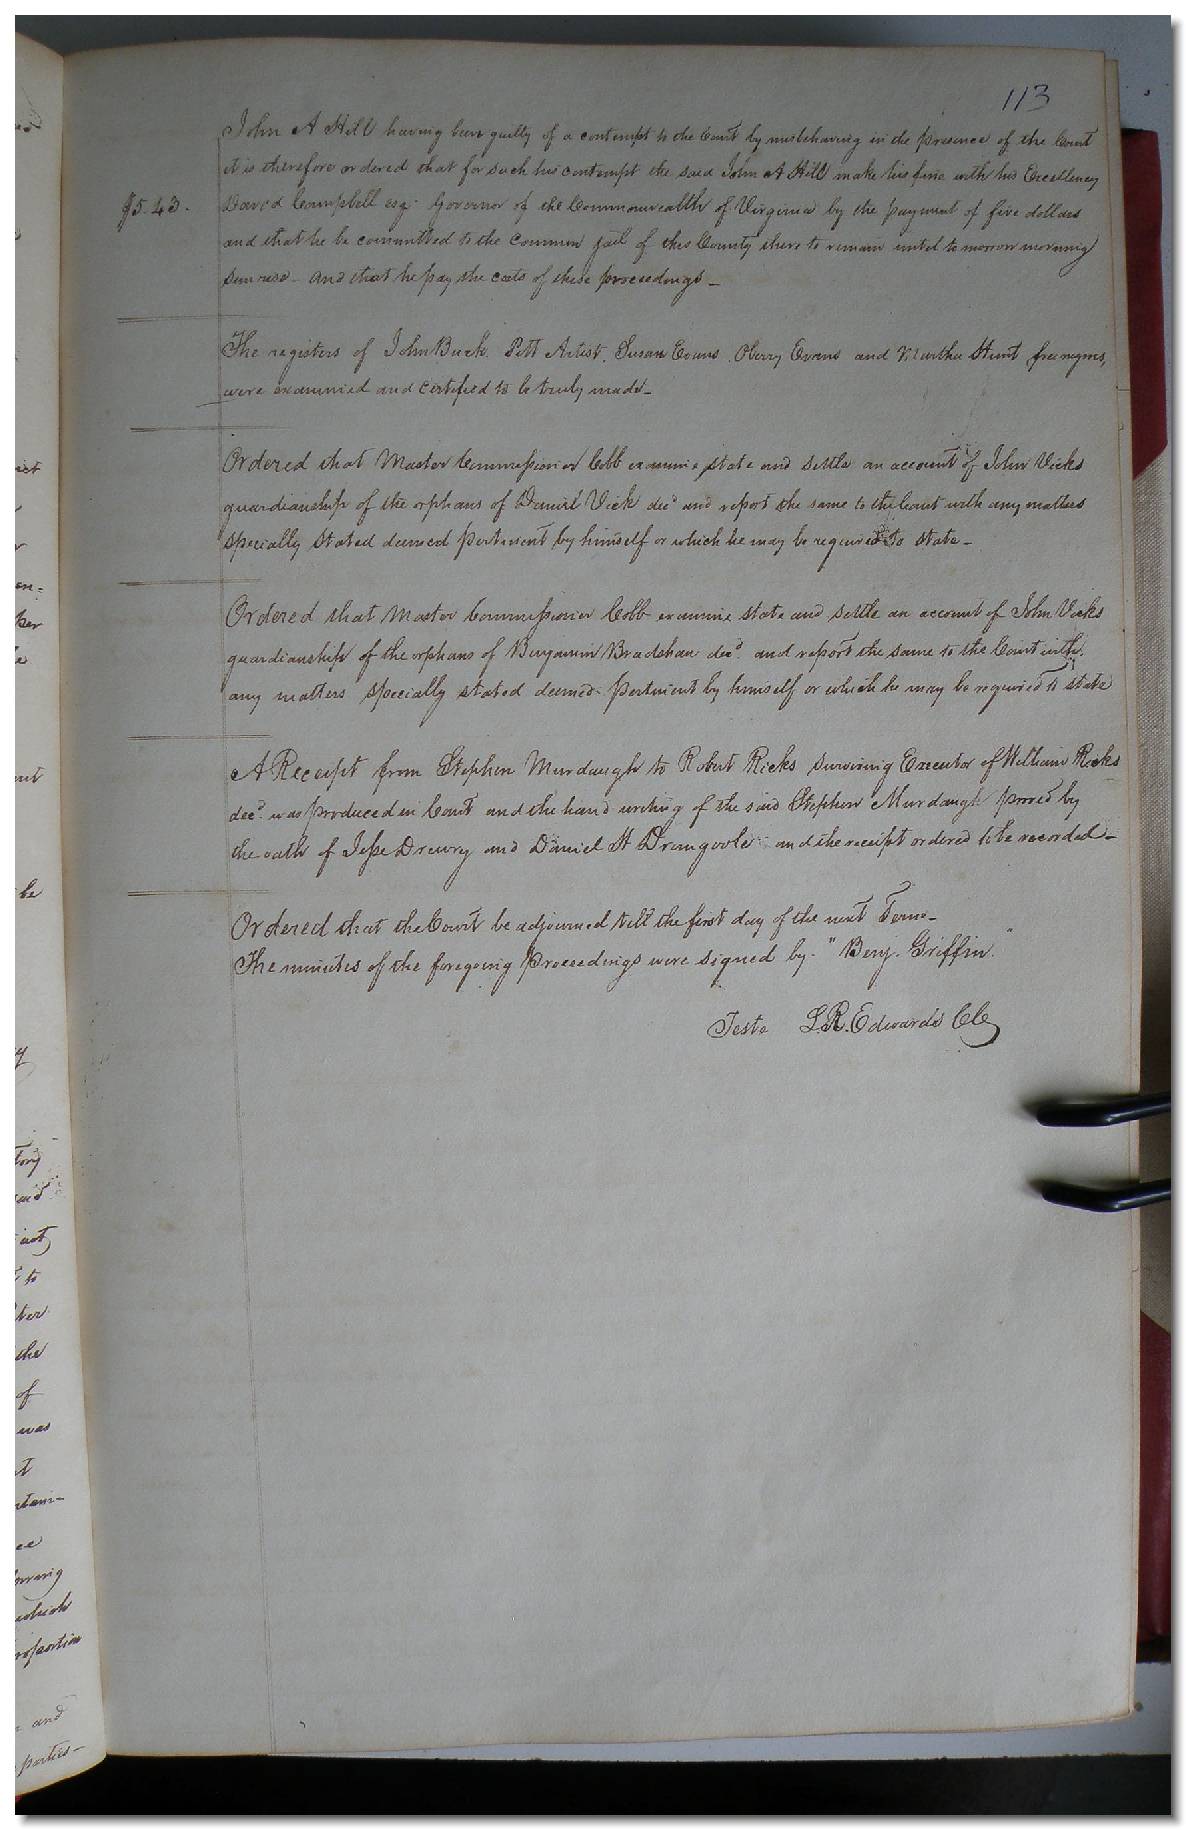 113
John A Hill having been guilty of a contempt to the Court by misbehaving in the presence of the Court
it is therefore ordered that for such his contempt the said John A Hill make his fine with his Excellency
$5.43.
David Campbell esq. Governor of the Commonwealth of Virginia by the payment of five dollars
and that he be committed to the common jail of this County there to remain until tomorrow morning
sun rise - and that he pay the costs of these proceedings -
The registers of John Buck, Pett Artist, Susan Evans, Oberry Evans and Martha Hunt free negroes,
were examined and certified to be truly made -
Ordered that Master Commissioner Cobb examine, state and settle an account of John Vicks
guardianship of the orphans of Daniel Vick decd and report the same to the Court with any matters
specially stated deemed pertinent by himself or which he may be required to state -
Ordered that Master Commissioner Cobb examine state and settle an account of John Vicks
guardianship of the orphans of Benjamin Bradshaw decd. and report the same to the Court with
any matters specially stated deemed pertinent by himself or which he may be required to state
A Receipt from Stephen Murdaugh to Robert Ricks surviving Executor of William Ricks
decd. was produced in Court and the hand writing of the said Stephen Murdaugh proved by
the oath of Jesse Drewry and Daniel H Dromgoole and the receipt ordered to be recorded -
Ordered that the Court be adjourned till the first day of the next Term -
The minutes of the foregoing proceedings were signed by - "Benj. Griffin."
Teste L.R. Edwards Clc
en=
ker
be
to
the
of
was
which
and
parties -